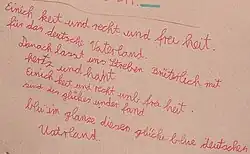 Einich keit und recht und frei heit.
für das deutsche Vaterland.
Danach lasst uns streben brüderlich mit
hertz und hant
Einich keit und recht und frei heit.
sind des glückes under fand
blüi im glanze diesen glücke blüe deutschen
Vaterland